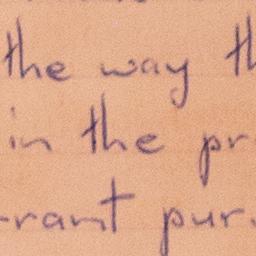 the way th
in the pr
rant pur